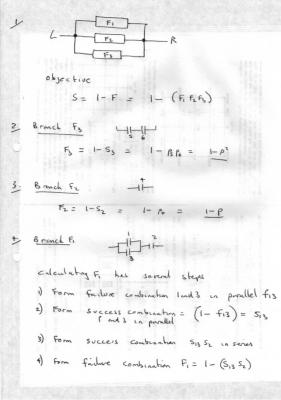 1
F1
L F2 R
F3
objective
S = 1 - F = 1 - (F1 F2 F3)
2. Branch F3
5 6
F3 = 1 - S3 = 1 - P5 P6 = 1 - P²
3. Branch F2
4
F2 = 1 - S2 = 1 - P4 = 1 - P
4 Branch F1
1 2
3
Calculating F1 has several steps
1) Form failure combination 1 and 3 in parallel f13
2) Form success combination = (1 - f13) = S13
1 and 3 in parallel
3) Form success combination S13 S2 in series
4) Form failure combination F1 = 1 - (S13 S2)